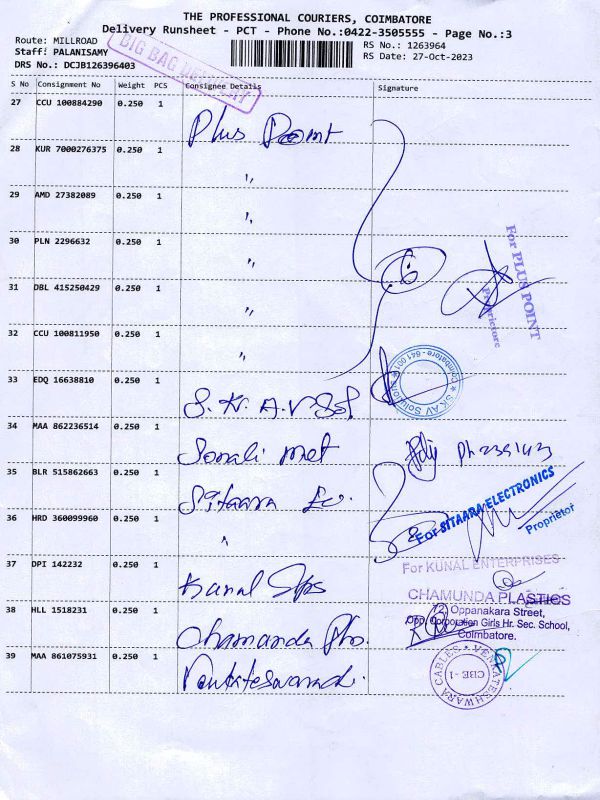 THE PROFESSIONAL COURIERS, COIMBATORE
Delivery Runsheet - PCT - Phone No.:0422-3505555 - Page No.:3
Route: MILLROAD
Staff: PALANISAMY
DRS No.: DCJB126396403
BIG BAG
RS No.: 1263964
RS Date: 27-Oct-2023
S No Consignment No Weight PCS Consignee Details Signature
27 CCU 100884290 0.250 1 Plus Point
28 KUR 7000276375 0.250 1 "
29 AMD 27382089 0.250 1 "
30 PLN 2296632 0.250 1 "
31 DBL 415250429 0.250 1 "
32 CCU 100811950 0.250 1 "
6
For PLUS POINT
Proprietore
33 EDQ 16638810 0.250 1 S.K.A.V Sol
SK AV Solutions * Coimbatore - 641 001 *
34 MAA 862236514 0.250 1 Sonali Met
35 BLR 515862663 0.250 1 Sitaara
36 HRD 360099960 0.250 1 "
For SITAARA ELECTRONICS
Proprietor
37 DPI 142232 0.250 1 Kunal
For KUNAL ENTERPRISES
38 HLL 1518231 0.250 1 Chamunda
CHAMUNDA PLASTICS
72, Oppanakara Street,
Opp. Corporation Girls Hr. Sec. School,
Coimbatore.
39 MAA 861075931 0.250 1
VENKATESHWARA CABLES
CBE - 1